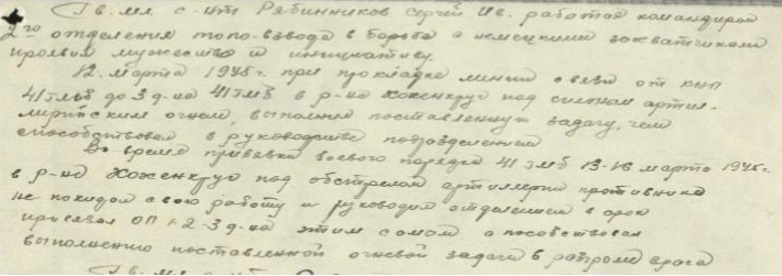 Гв. мл. с-нт Рябинников Сергей Ив. работая командиром
2го отделения топо-взвода в борьбе с немецкими захватчиками
проявил мужество и инициативу.
12 марта 1945 г. при прокладке линии связи от КНП
41 гмб до 3 д-на 41 гмб в р-не Хохенкруг под сильным артил-
лерийским огнем, выполнил поставленную задачу, чем
способствовал в руководстве подразделением
Во время привязки боевого порядка 41 гмб 13-16 марта 1945 г
в р-не Хохенкруг под обстрелом артиллерии противника
не покидал свою работу и руководил отделением в срок
привязал ОП 1-2-3 д-на этим самым способствовал
выполнению поставленной огневой задачи в разгроме врага
Гв. мл.